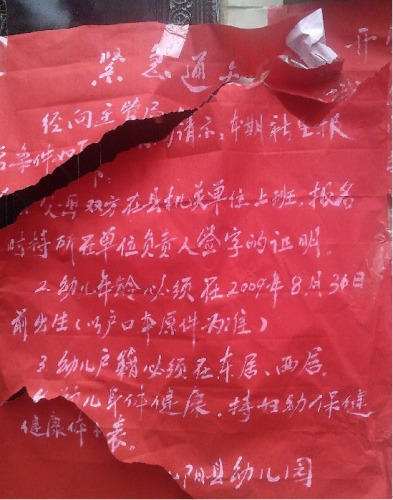 紧急通
开
经向主管
请示,本期新生报
名条件如
下
父母双方在县机关单位上班,报名
时持所在单位负责人签字的证明。
2.幼儿年龄必须在2009年8月30日
前出生(以户口本原件为准)
3.幼儿户籍必须在东居、西居。
幼儿身体健康,持妇幼保健
健康体 表。
阳县幼儿园